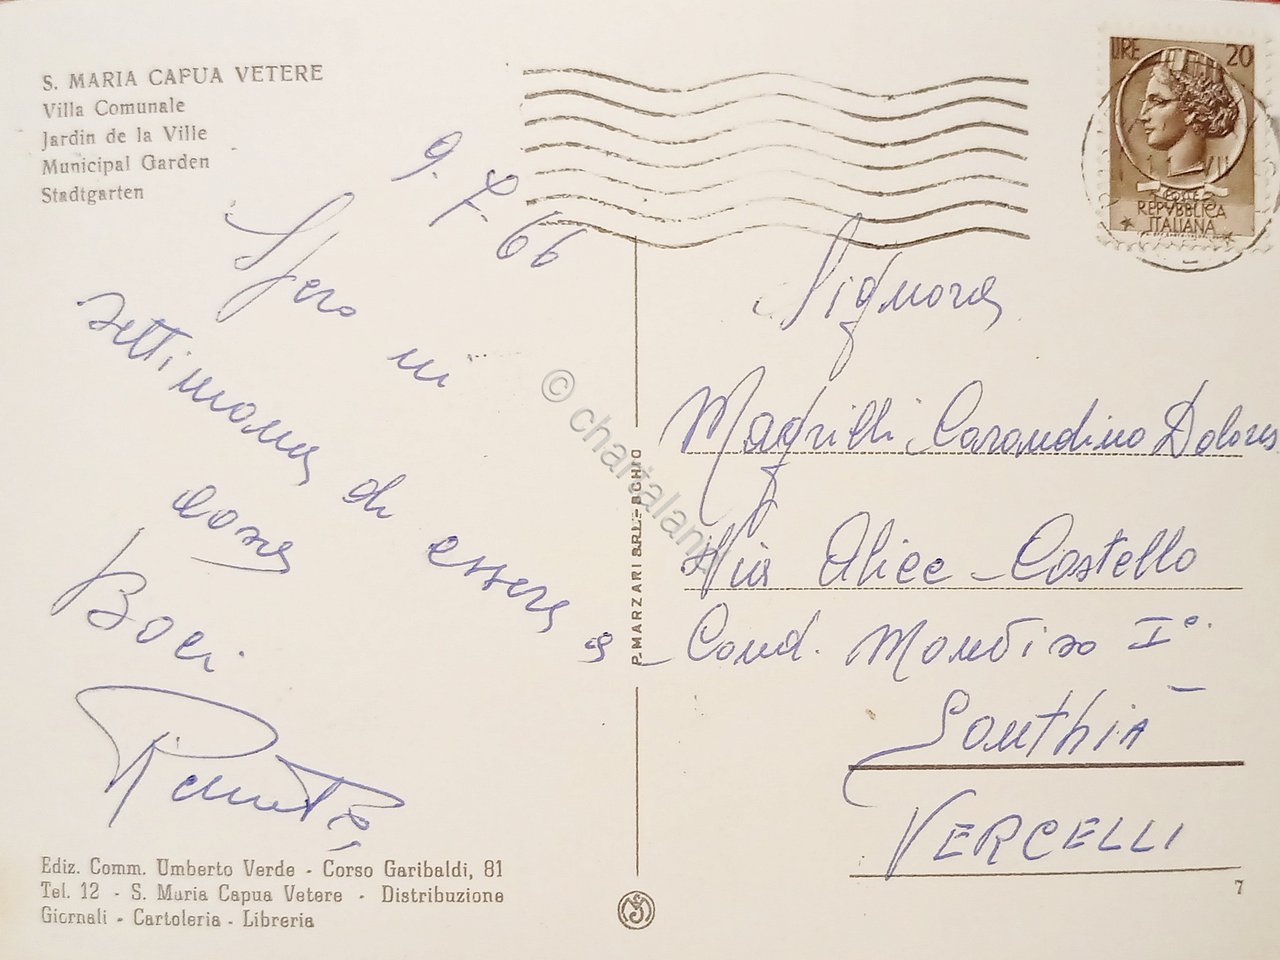 S. MARIA CAPUA VETERE
Villa Comunale
Jardin de la Ville
Municipal Garden
Stadtgarten
9. 7. 66
Spero in
settimana di essere a
casa
Baci.
Renato
Ediz. Comm. Umberto Verde - Corso Garibaldi, 81
Tel. 12 - S. Maria Capua Vetere - Distribuzione
Giornali - Cartoleria - Libreria
P. MARZARI SRL - SCHIO
© chartaland
LIRE 20
POSTE
REPVBBLICA
ITALIANA
Signora
Magrilli Carandino Dolores
Via Alice - Castello
- Cond. Monviso I°.
Santhià
VERCELLI
7